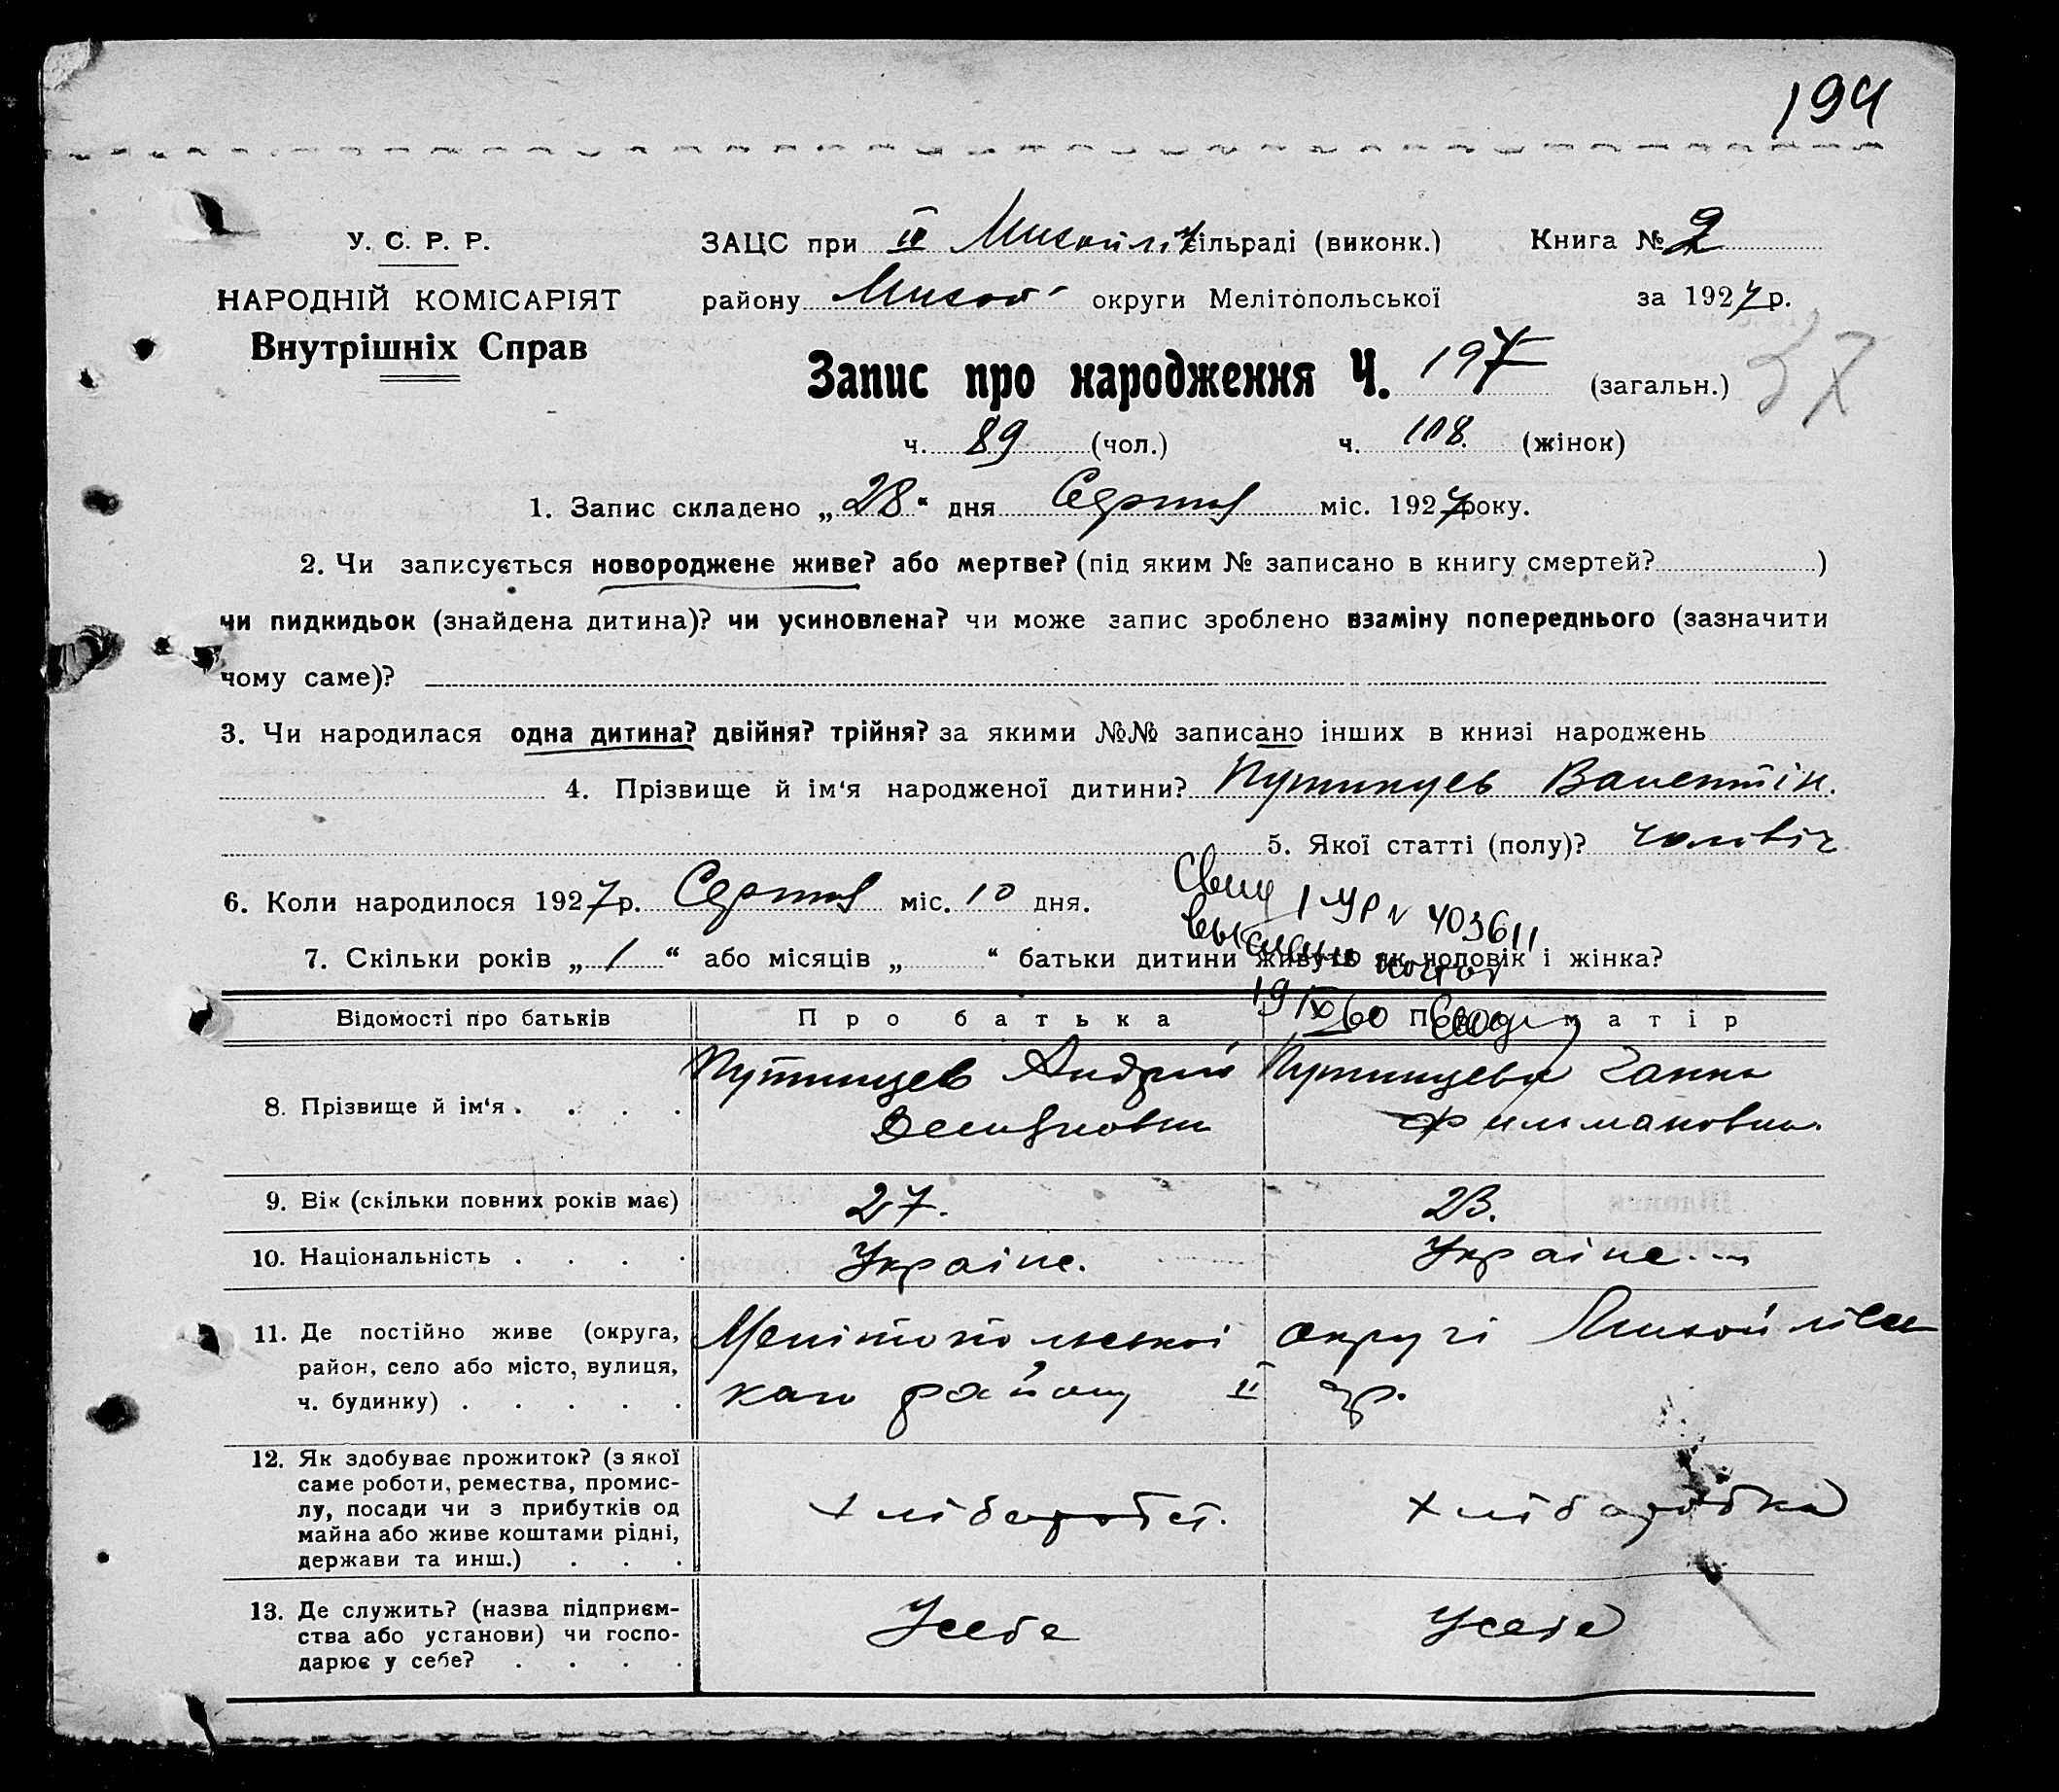 194
У. С. Р. Р.
НАРОДНІЙ КОМІСАРІЯТ
Внутрішніх Справ
ЗАЦС при II Михайлів сільраді (виконк.) Книга № 2
району Михай округи Мелітопольської за 1927 р.
Запис про народження Ч. 197 (загальн.) 37
ч. 89 (чол.) ч. 108. (жінок)
1. Запис складено „28“ дня Серпня міс. 1927 року.
2. Чи записується новороджене живе? або мертве? (під яким № записано в книгу смертей? )
чи пидкидьок (знайдена дитина)? чи усиновлена? чи може запис зроблено взаміну попереднього (зазначити
чому саме)?
3. Чи народилася одна дитина? двійня? трійня? за якими №№ записано інших в книзі народжень
4. Прізвище й ім‘я народженої дитини? Путинцев Валентін.
5. Якої статті (полу)? чоловіч
6. Коли народилося 1927 р. Серпня міс. 10 дня.
I УР № 403611
7. Скільки років „ 1 “ або місяців „ “ батьки дитини живуть як чоловік і жінка?
19 IX 60
Відомості про батьків Про батька Про матір
8. Прізвище й ім‘я . . . . Путинцев Андрій Путинцева Ганна
9. Вік (скільки повних років має) 27. 23.
10. Національність . . . . Україне. Україне
11. Де постійно живе (округа, район, село або місто, вулиця, ч. будинку) . . . . . Мелітопольської округі Михайлівс
кого району II гр.
12. Як здобуває прожиток? (з якої
саме роботи, ремества, промис-
лу, посади чи з прибутків од
майна або живе коштами рідні,
держави та инш.) . . . хліборобст. хліборобка
13. Де служить? (назва підприєм-
ства або установи) чи госпо-
дарює у себе? . . . . У себе У себе